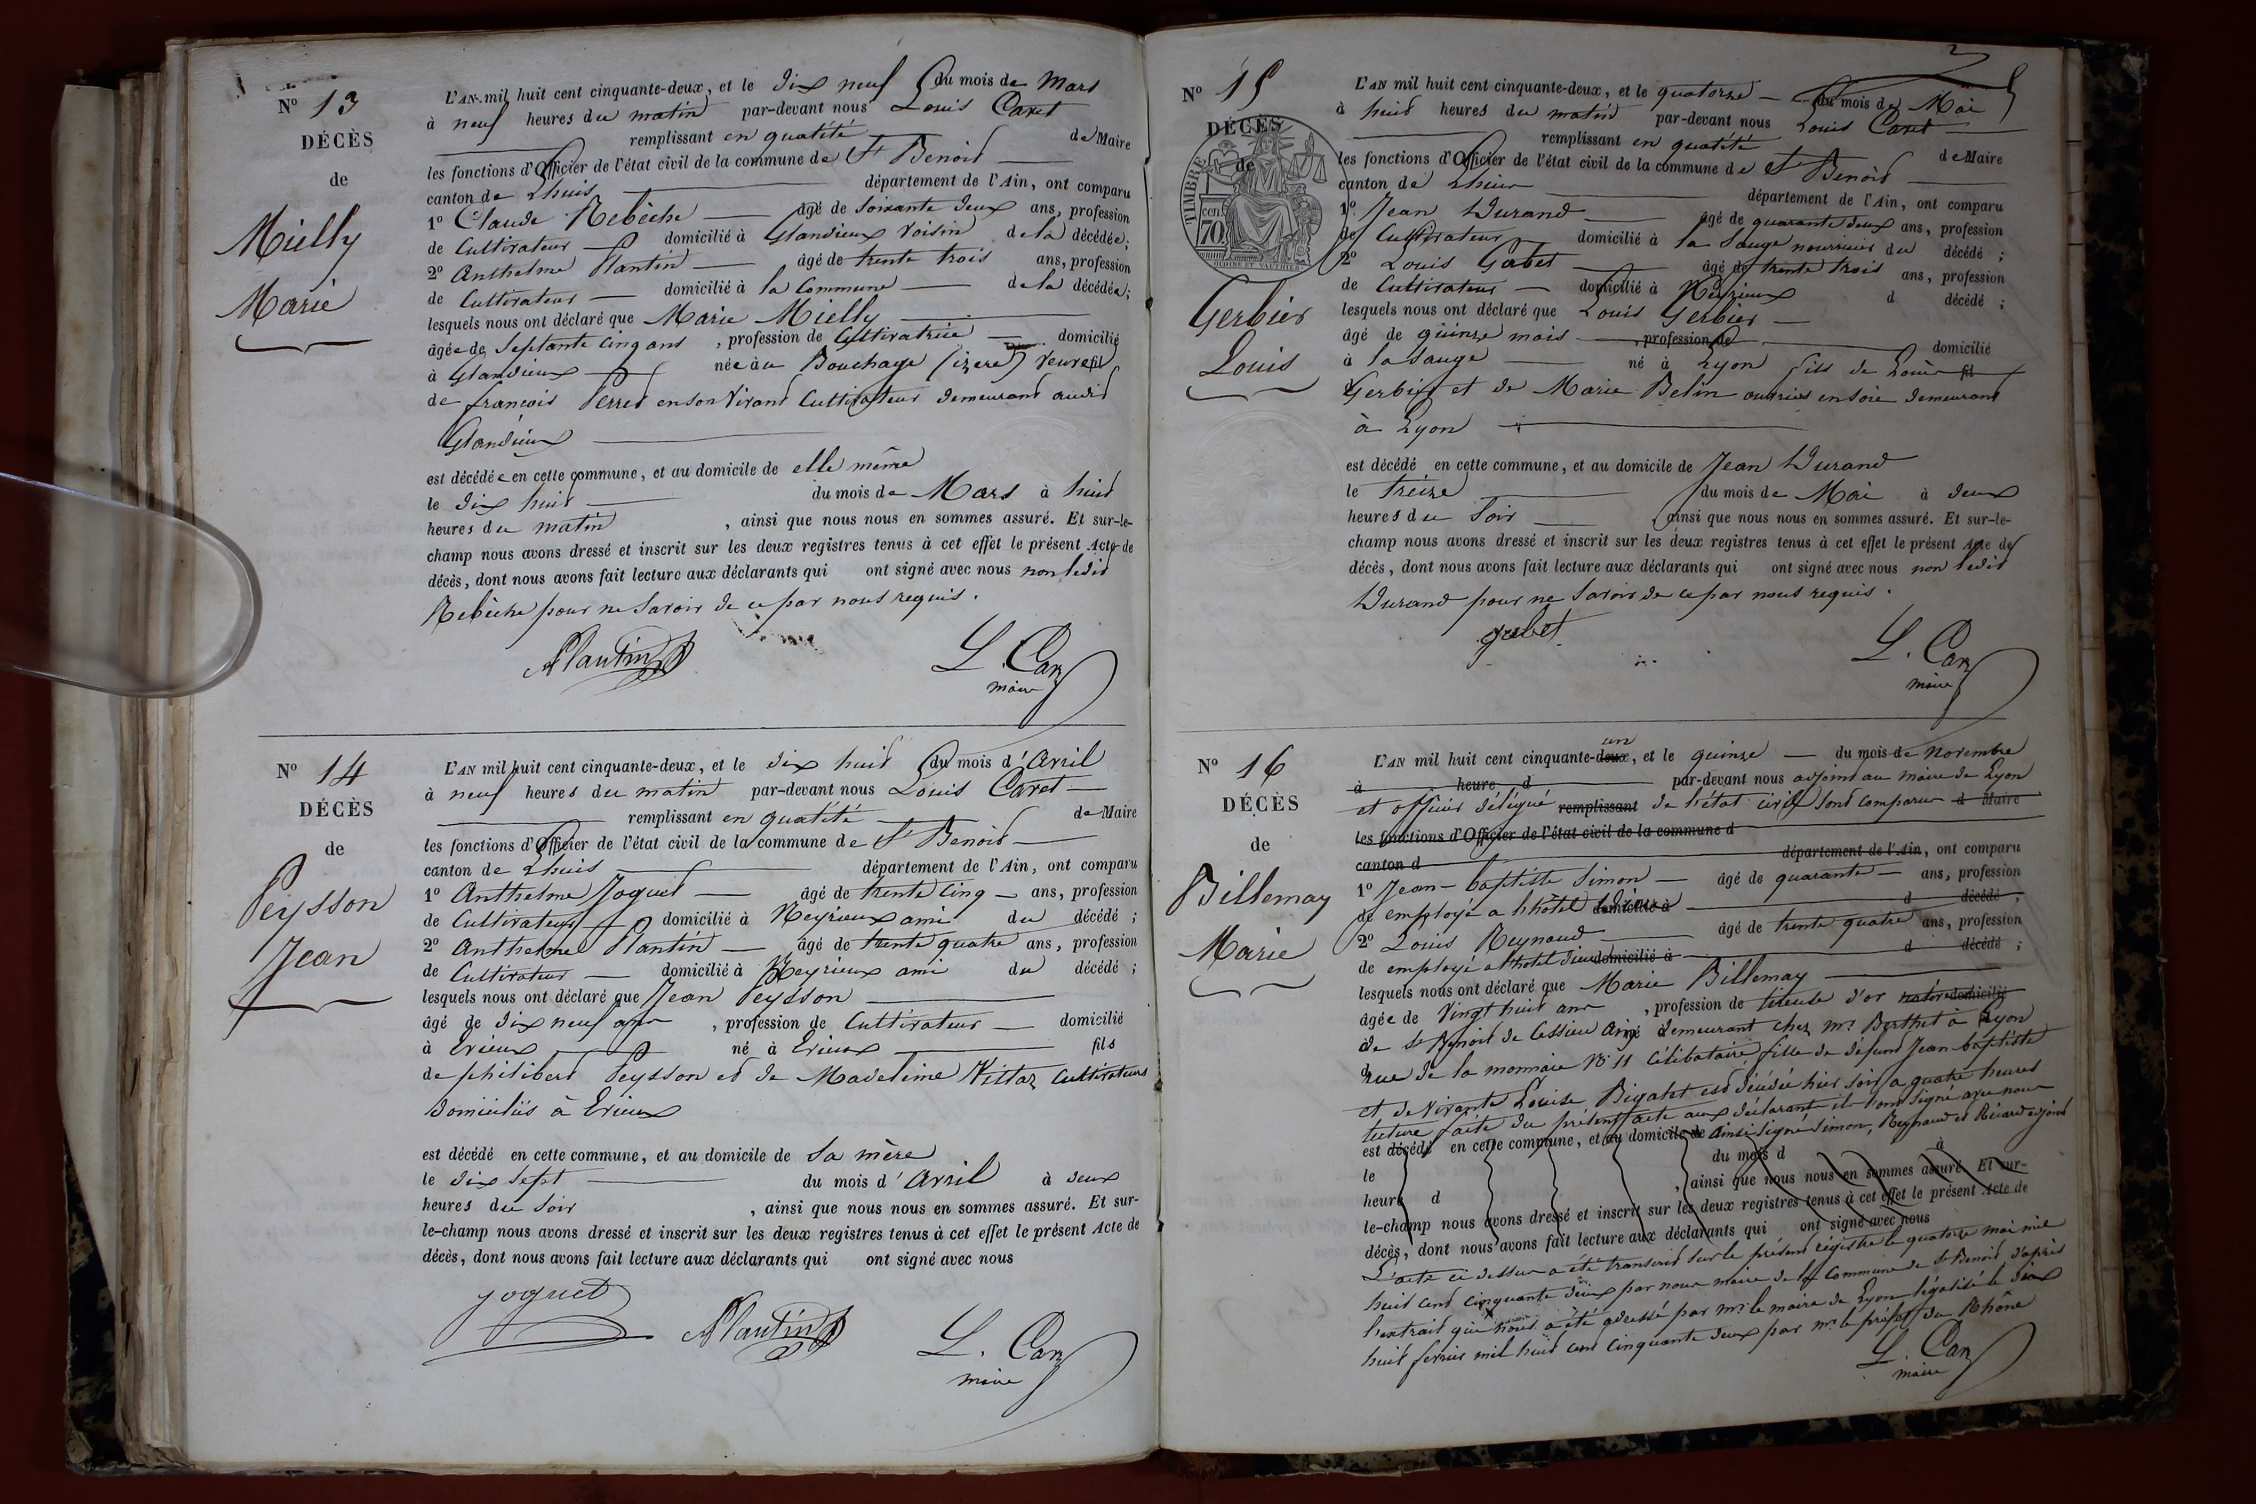 N° 13
DÉCÈS
de
Mielly
Marie
L'AN mil huit cent cinquante-deux, et le dix neuf du mois de Mars
à neuf heures du matin par-devant nous Louis Caret
remplissant en qualité de Maire
les fonctions d'Officier de l'état civil de la commune de St Benoit
canton de Lhuis département de l'Ain, ont comparu
1° Claude Rebèche âgé de soixante deux ans, profession
de Cultivateur domicilié à Glandieux voisin de la décédée;
2° Anthelme Plantin âgé de trente trois ans, profession
de Cultivateur domicilié à la Commune de la décédée;
lesquels nous ont déclaré que Marie Mielly
âgée de septante cinq ans, profession de Cultivatrice domicilié
à Glandieux née au Bouchage (izere) veuve fil
de francois Perred en son vivant Cultivateur demeurand audit
Glandieux
est décédée en cette commune, et au domicile de elle même
le dix huit du mois de Mars à huit
heures du matin, ainsi que nous nous en sommes assuré. Et sur-le-
champ nous avons dressé et inscrit sur les deux registres tenus à cet effet le présent Acte de
décès, dont nous avons fait lecture aux déclarants qui ont signé avec nous non ledit
Rebèche pour ne savoir de ce par nous requis.
APlantin L. Caret
maire
N° 14
DÉCÈS
de
Peysson
Jean
L'AN mil huit cent cinquante-deux, et le dix huit du mois d'Avril
à neuf heures du matin par-devant nous Louis Caret
remplissant en qualité de Maire
les fonctions d'Officier de l'état civil de la commune de St Benoit
canton de Lhuis département de l'Ain, ont comparu
1° Anthelme Joguet âgé de trente cinq ans, profession
de Cultivateur domicilié à Neyrieux ami du décédé;
2° Anthelme Plantin âgé de trente quatre ans, profession
de Cultivateur domicilié à Neyrieux ami du décédé;
lesquels nous ont déclaré que Jean Peysson
âgé de dix neuf ans, profession de Cultivateur domicilié
à Evieux né à Evieux fils
de philibert Peysson et de Madeleine Vittaz Cultivateurs
domiciliés à Evieux
est décédé en cette commune, et au domicile de sa mère
le dix sept du mois d'Avril à deux
heures du soir, ainsi que nous nous en sommes assuré. Et sur-
le-champ nous avons dressé et inscrit sur les deux registres tenus à cet effet le présent Acte de
décès, dont nous avons fait lecture aux déclarants qui ont signé avec nous
joguet APlantin L. Caret
maire
N° 15
DÉCÈS
de
TIMBRE
cen. 70
Gerbier
Louis
L'AN mil huit cent cinquante-deux, et le quatorze du mois de Mai
à huit heures du matin par-devant nous Louis Caret
remplissant en qualité de Maire
les fonctions d'Officier de l'état civil de la commune de St Benoit
canton de Lhuis département de l'Ain, ont comparu
1° Jean Durand âgé de quarante deux ans, profession
de Cultivateur domicilié à la Sauge nourricier du décédé;
2° Louis Gabet âgé de trente trois ans, profession
de Cultivateur domicilié à Neyrieux d décédé;
lesquels nous ont déclaré que Louis Gerbier
âgé de quinze mois profession de domicilié
à la Sauge né à Lyon fils de Louis fil
Gerbier et de Marie Belin ouvriers en soie demeurant
à Lyon
est décédé en cette commune, et au domicile de Jean Durand
le treize du mois de Mai à deux
heures du soir, ainsi que nous nous en sommes assuré. Et sur-le-
champ nous avons dressé et inscrit sur les deux registres tenus à cet effet le présent Acte de
décès, dont nous avons fait lecture aux déclarants qui ont signé avec nous non ledit
Durand pour ne savoir de ce par nous requis.
gabet L. Caret
maire
N° 16
DÉCÈS
de
Billemay
Marie
L'AN mil huit cent cinquante-deux un, et le quinze du mois de Novembre
à heure d par-devant nous adjoint au maire de Lyon
et officier délégué remplissant de l'état civil sont comparus d Maire
les fonctions d'Officier de l'état civil de la commune d
canton d département de l'Ain, ont comparu
1° Jean-baptiste Simon âgé de quarante ans, profession
de employé a l'hôtel Dieu domicilié à d décédé;
2° Louis Reynaud âgé de trente quatre ans, profession
de employé a l'hotel Dieu domicilié à d décédé;
lesquels nous ont déclaré que Marie Billemay
âgée de vingt huit ans, profession de tireuse d'or native domicilié
à de St Benoit de Cessieu Ain né demeurant chez Mr Berthet à Lyon
rue de la monnaie N° 11 célibataire, fille de défunt Jean baptiste
et de vivante Louise Bigalet est décédée hier soir a quatre heures
lecture faite du présent acte aux déclarants ils ont signé avec nous
est décédé en cette commune, et au domicile de ainsi signé Simon, Reynaud et Récard adjoint
le du mois d à
heure d, ainsi que nous nous en sommes assuré. Et sur-
le-champ nous avons dressé et inscrit sur les deux registres tenus à cet effet le présent Acte de
décès, dont nous avons fait lecture aux déclarants qui ont signé avec nous
L'acte ci dessus a été transcrit sur le présent régistre le quatorze mai mil
huit cent cinquante deux par nous maire de la Commune de St Benoit, d'après
l'extrait qui nous a été adressé par Mr le maire de Lyon légalisé le deux
huit fevrier mil huit cent cinquante deux par Mr le préfet du Rhône
L. Caret
maire